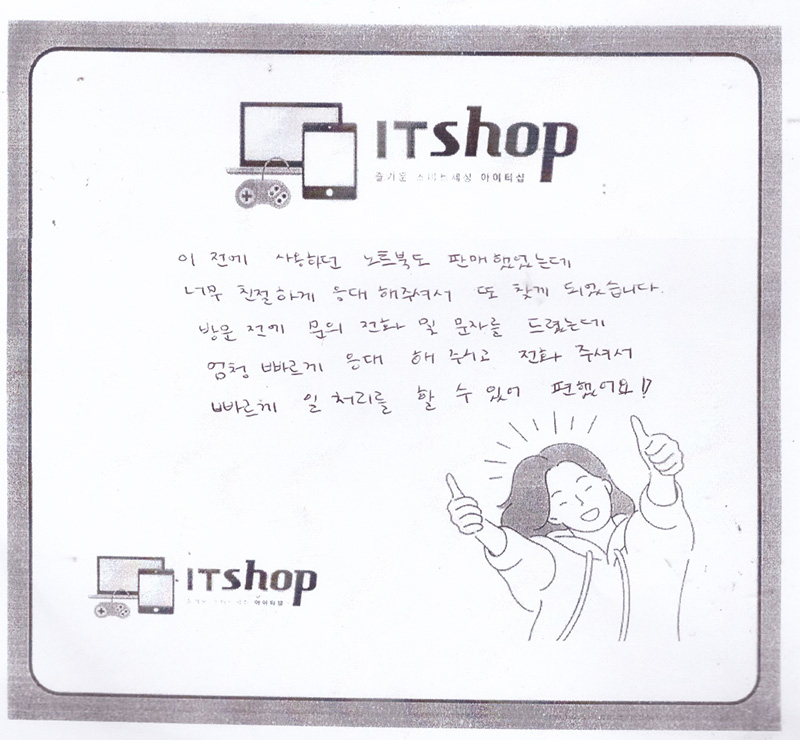 ITshop
즐거운 스마트세상 아이티샵
이 전에 사용하던 노트북도 판매했었는데
너무 친절하게 응대 해주셔서 또 찾게 되었습니다.
방문 전에 문의 전화 및 문자를 드렸는데
엄청 빠르게 응대 해 주시고 전화 주셔서
빠르게 일 처리를 할 수 있어 편했어요!
ITshop
아이티샵